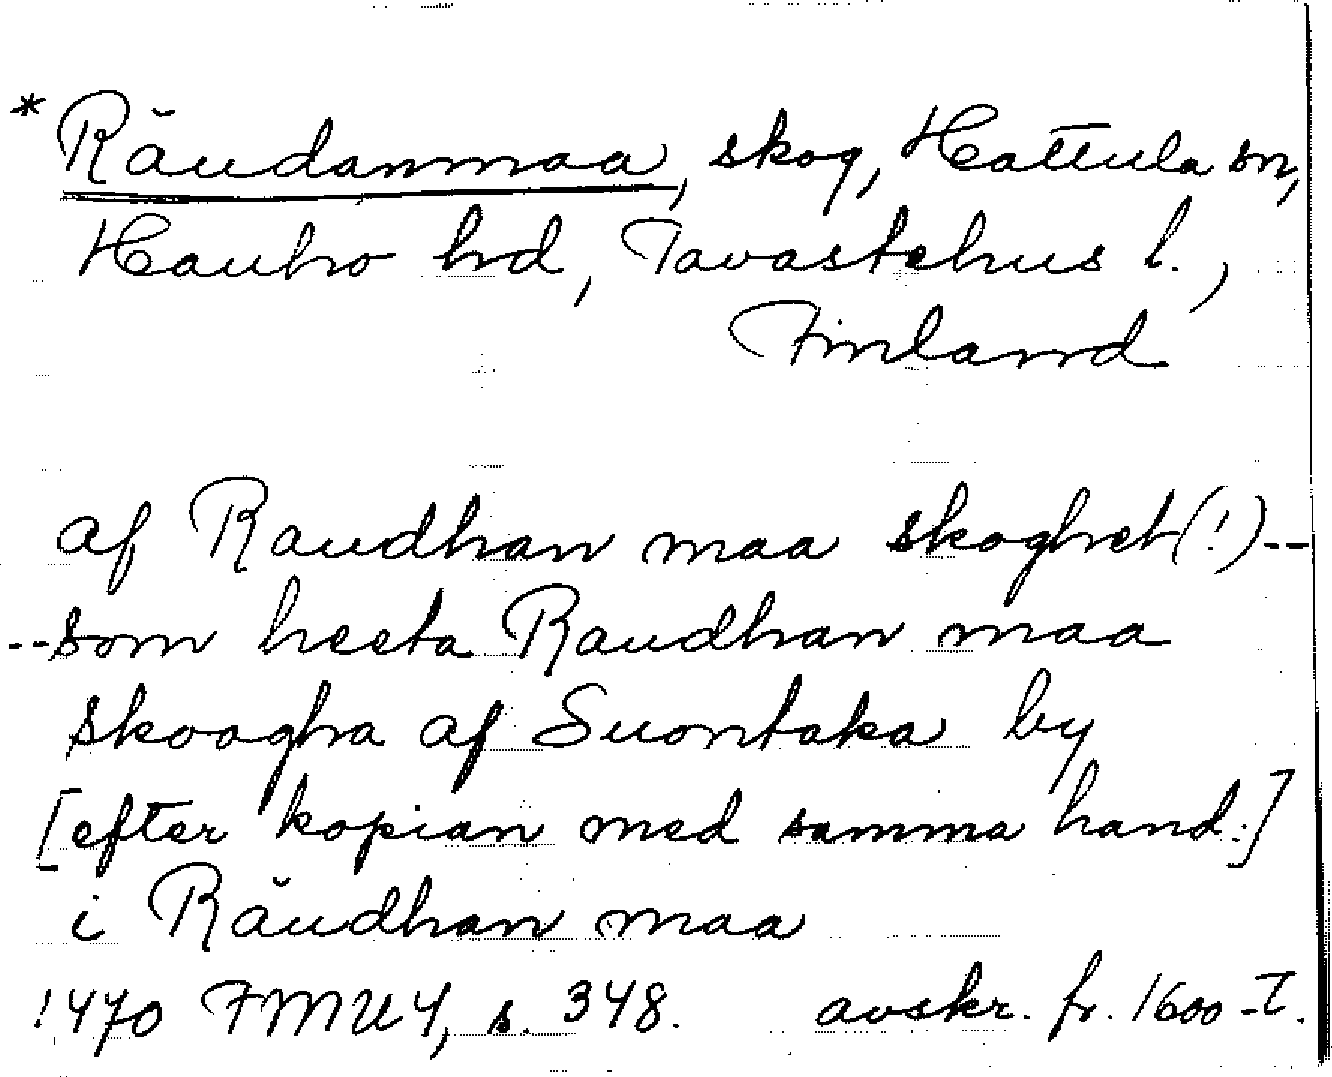 * Răudanmaa, skog, Hattula sn,
Hauho hd, Tavastehus l.,
Finland
af Raudhan maa skoghet(!)--
--som heeta Raudhan maa
skoogha af Suontaka by
[efter kopian med samma hand:]
i Răudhan maa
1470 FMU 4, s. 348. avskr. fr. 1600-T.